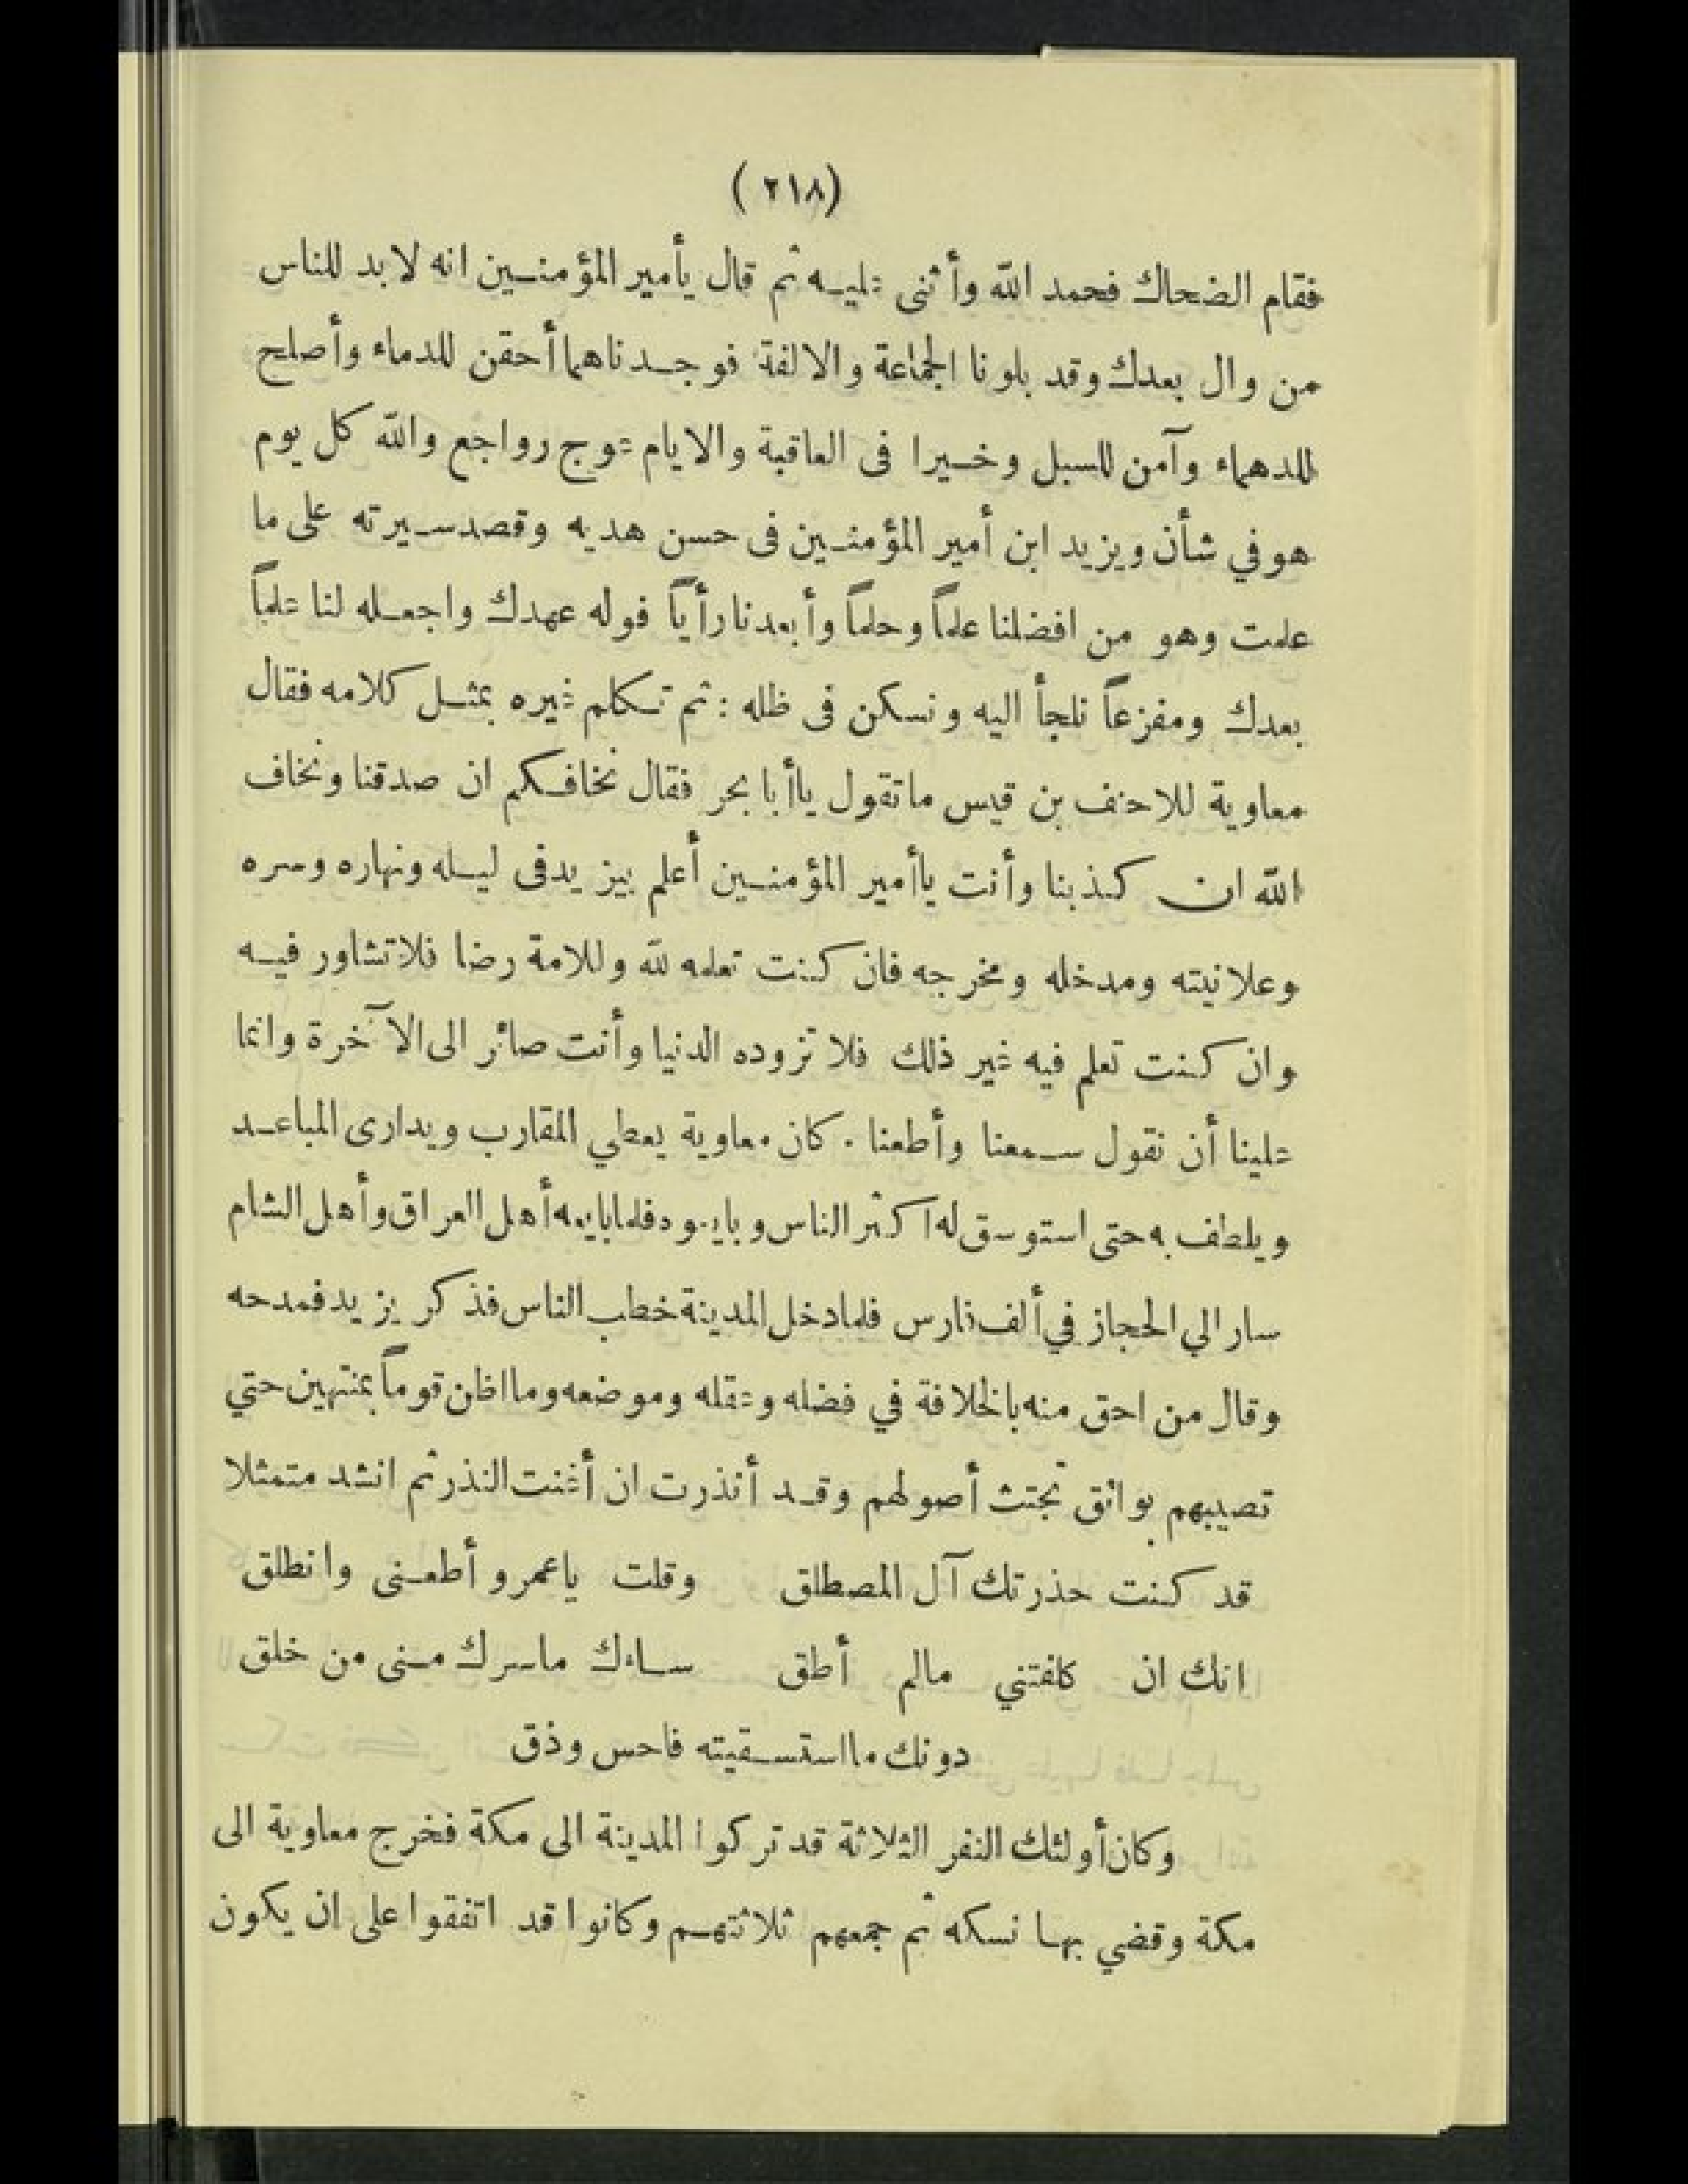 (٢١٨)
فقام الضحاك فحمد الله وأثنى عليه ثم قال يأمير المؤمنين انه لابد للناس
من وال بعدك وقد بلونا الجماعة والالفة فوجدناهما أحقن للدماء وأصلح
للدهماء وآمن للسبل وخيرا فى العاقبة والايام عوج رواجع والله كل يوم
هو في شأن ويزيد ابن أمير المؤمنين فى حسن هديه وقصد سيرته على ما
علمت وهو من افضلنا علماً وحلماً وأبعدنا رأياً فوله عهدك واجعله لنا علماً
بعدك ومفزعاً نلجأ اليه ونسكن فى ظله : ثم تكلم غيره بمثل كلامه فقال
معاوية للاحنف بن قيس ماتقول ياأبا بحر فقال نخافكم ان صدقنا ونخاف
الله ان كذبنا وأنت ياأمير المؤمنين أعلم بيزيد فى ليله ونهاره وسره
وعلانيته ومدخله ومخرجه فان كنت تعلمه لله وللامة رضا فلا تشاور فيه
وان كنت تعلم فيه غير ذلك فلا تزوده الدنيا وأنت صائر الى الآخرة وانما
علينا أن نقول سمعنا وأطعنا . كان معاوية يعطي المقارب ويدارى المباعد
ويلطف به حتى استوسق له اكثر الناس وبايعوه فلما بايعه أهل العراق وأهل الشام
سار الي الحجاز في ألف فارس فلما دخل المدينة خطب الناس فذكر يزيد فمدحه
وقال من احق منه بالخلافة في فضله وعقله وموضعه وما اظن قوماً بمنتهين حتي
تصيبهم بوائق تجتث أصولهم وقد أنذرت ان أغنت النذر ثم انشد متمثلا
قد كنت حذرتك آل المصطلق وقلت ياعمرو أطعنى وانطلق
انك ان كلفتني مالم أطق ساءك ماسرك منى من خلق
دونك مااستسقيته فاحس وذق
وكان أولئك النفر الثلاثة قد تركوا المدينة الى مكة فخرج معاوية الى
مكة وقضي بها نسكه ثم جمعهم ثلاثتهم وكانوا قد اتفقوا على ان يكون